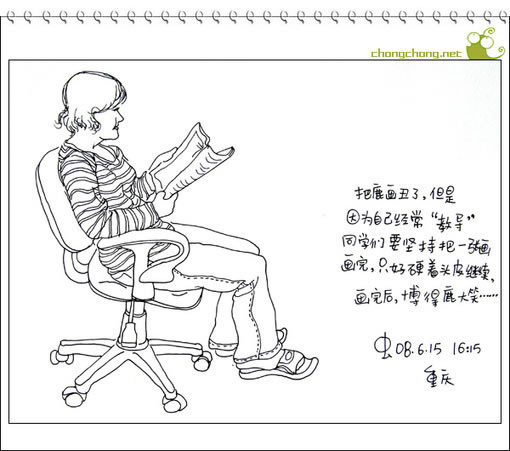 chongchong.net
把鹿画丑了，但是
因为自己经常“教导”
同学们要坚持把一张画
画完，只好硬着头皮继续，
画完后，博得鹿大笑……
虫 08.6.15 16:15
重庆